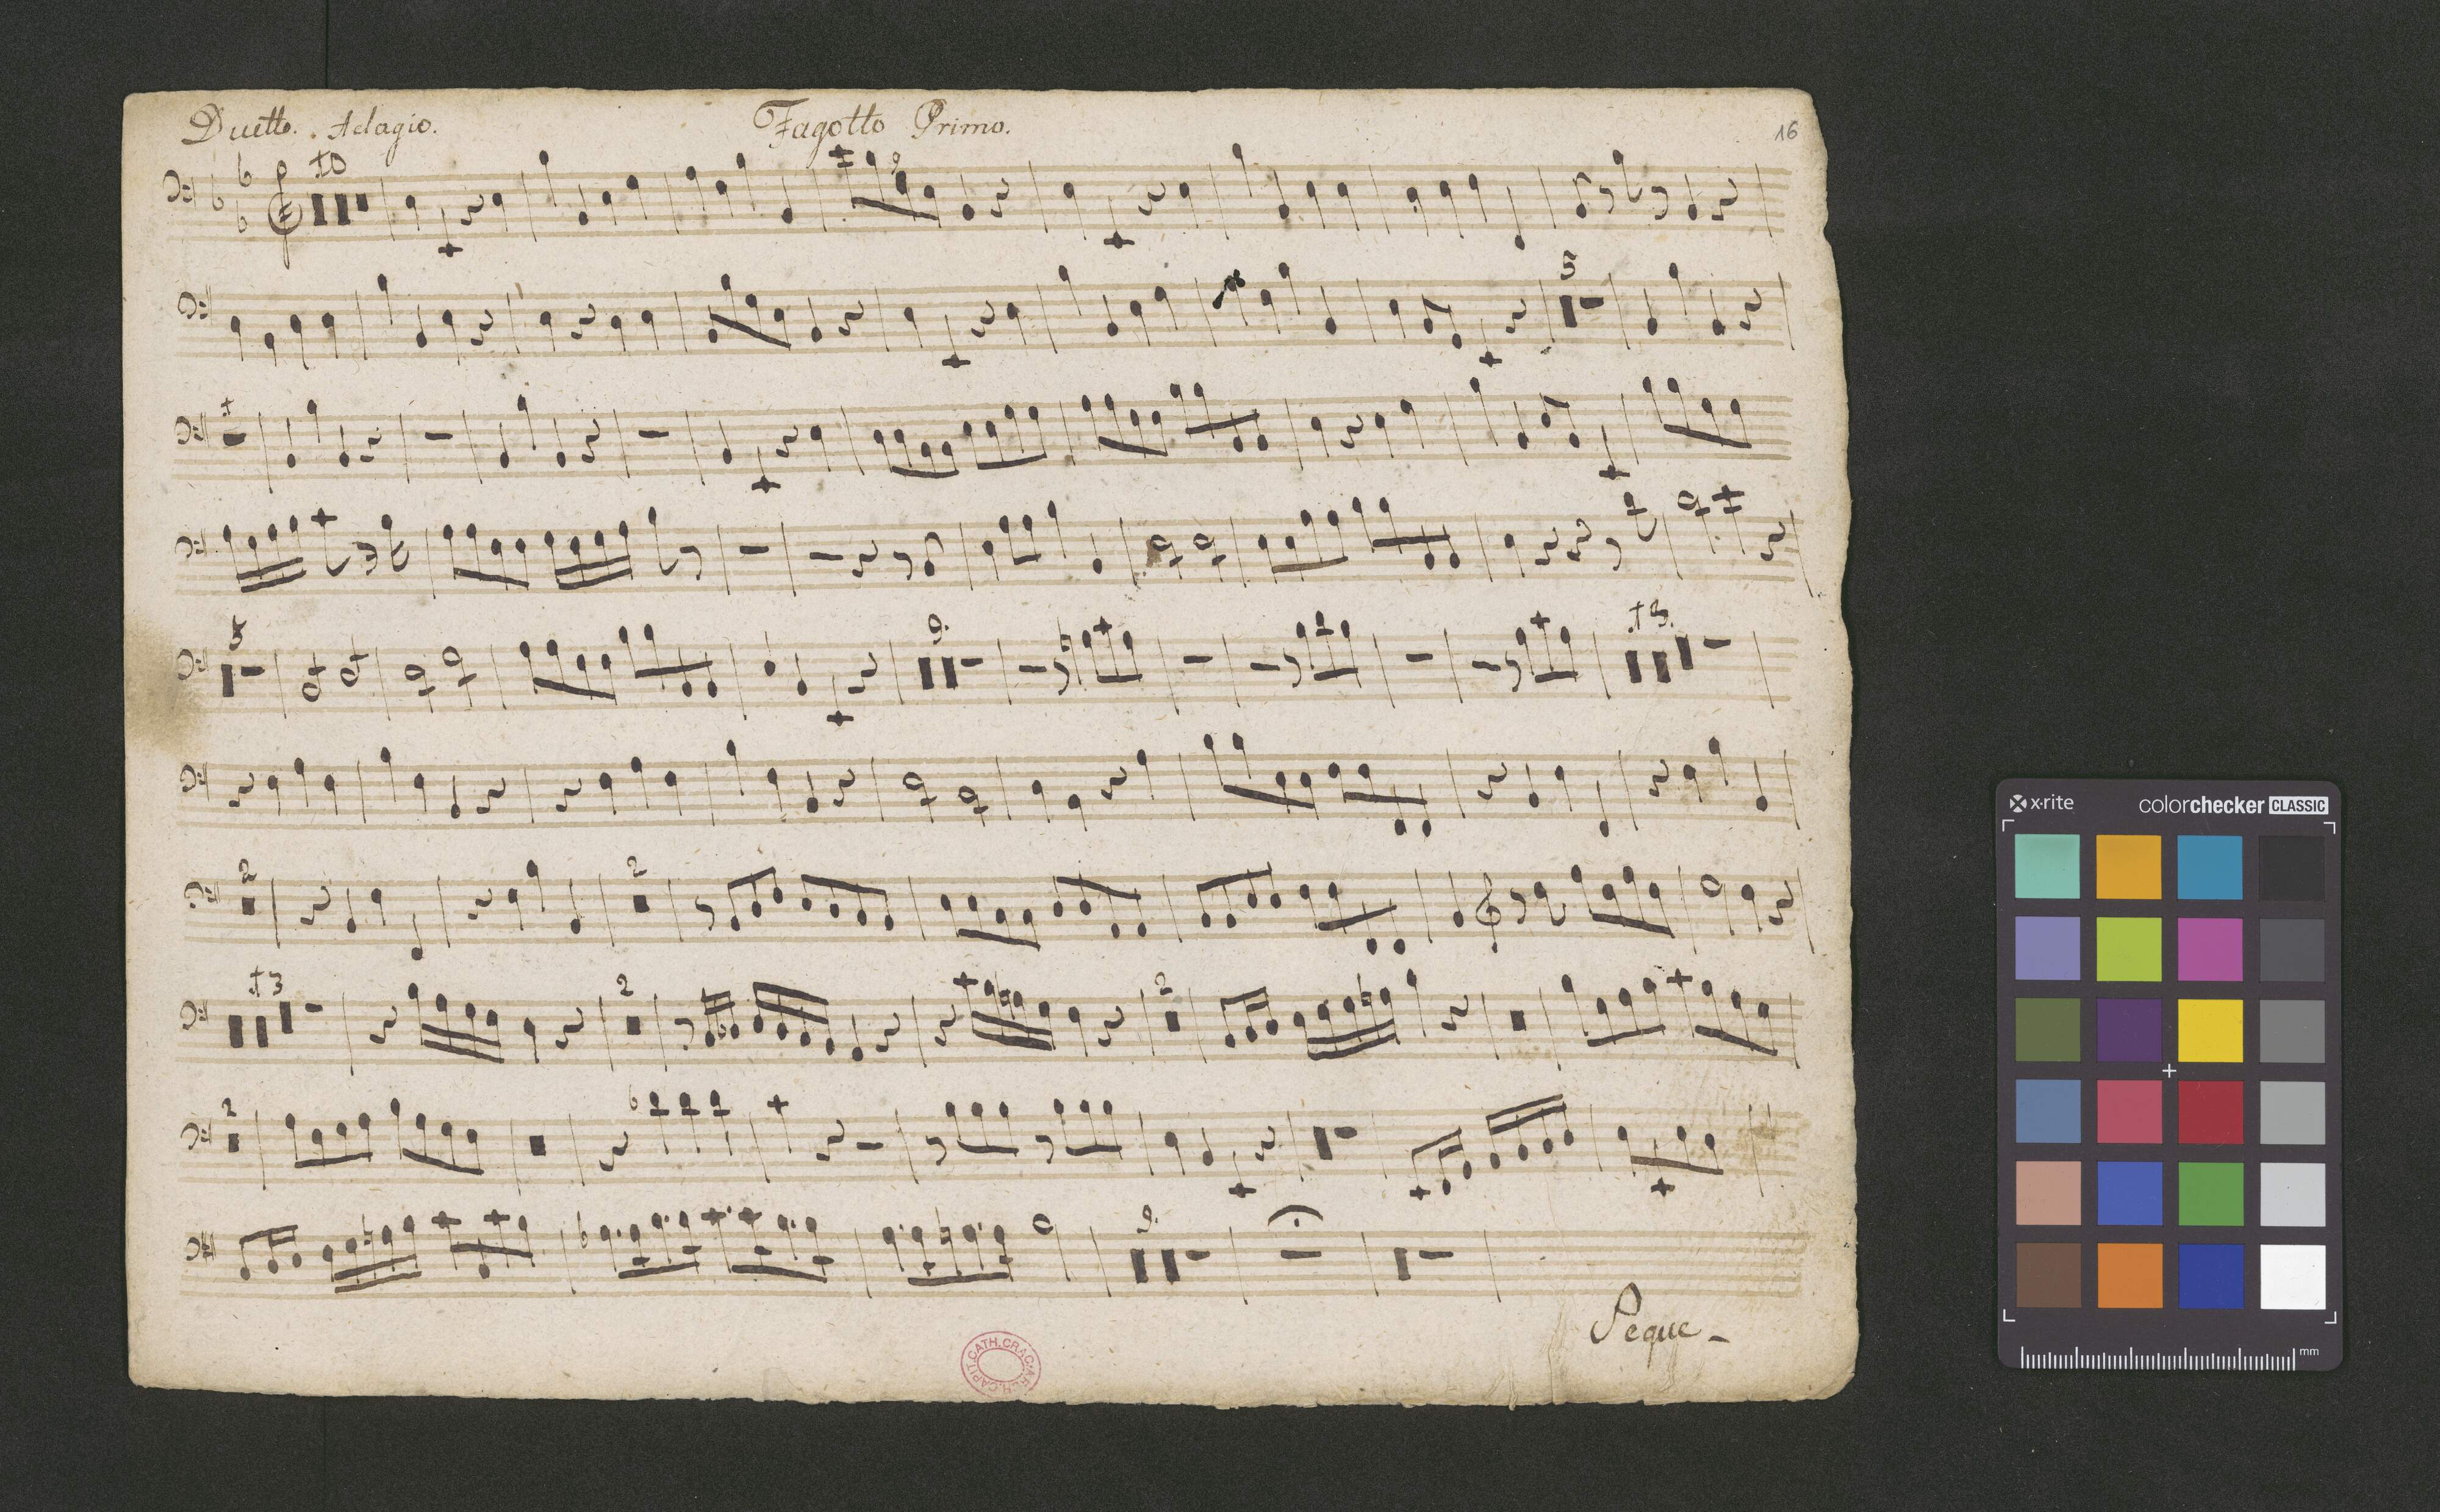 Duetto. Adagio. Fagotto Primo. 16
10
5
1
5
9.
13.
2 2
13 2 2
2
9.
Seque
CAPIT. CATH. CRAC.
x-rite colorchecker CLASSIC
mm